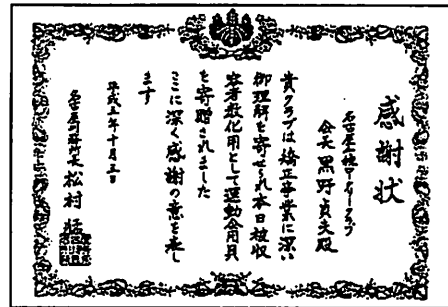 感謝状
名古屋北ロータリークラブ
会長 黒野貞夫殿
貴クラブは矯正事業に深い
御理解を寄せられ本日被収
容者教化用として運動会用具
を寄贈されました
ここに深く感謝の意を表し
ます
平成三年十月三日
名古屋刑務所長 松村 猛